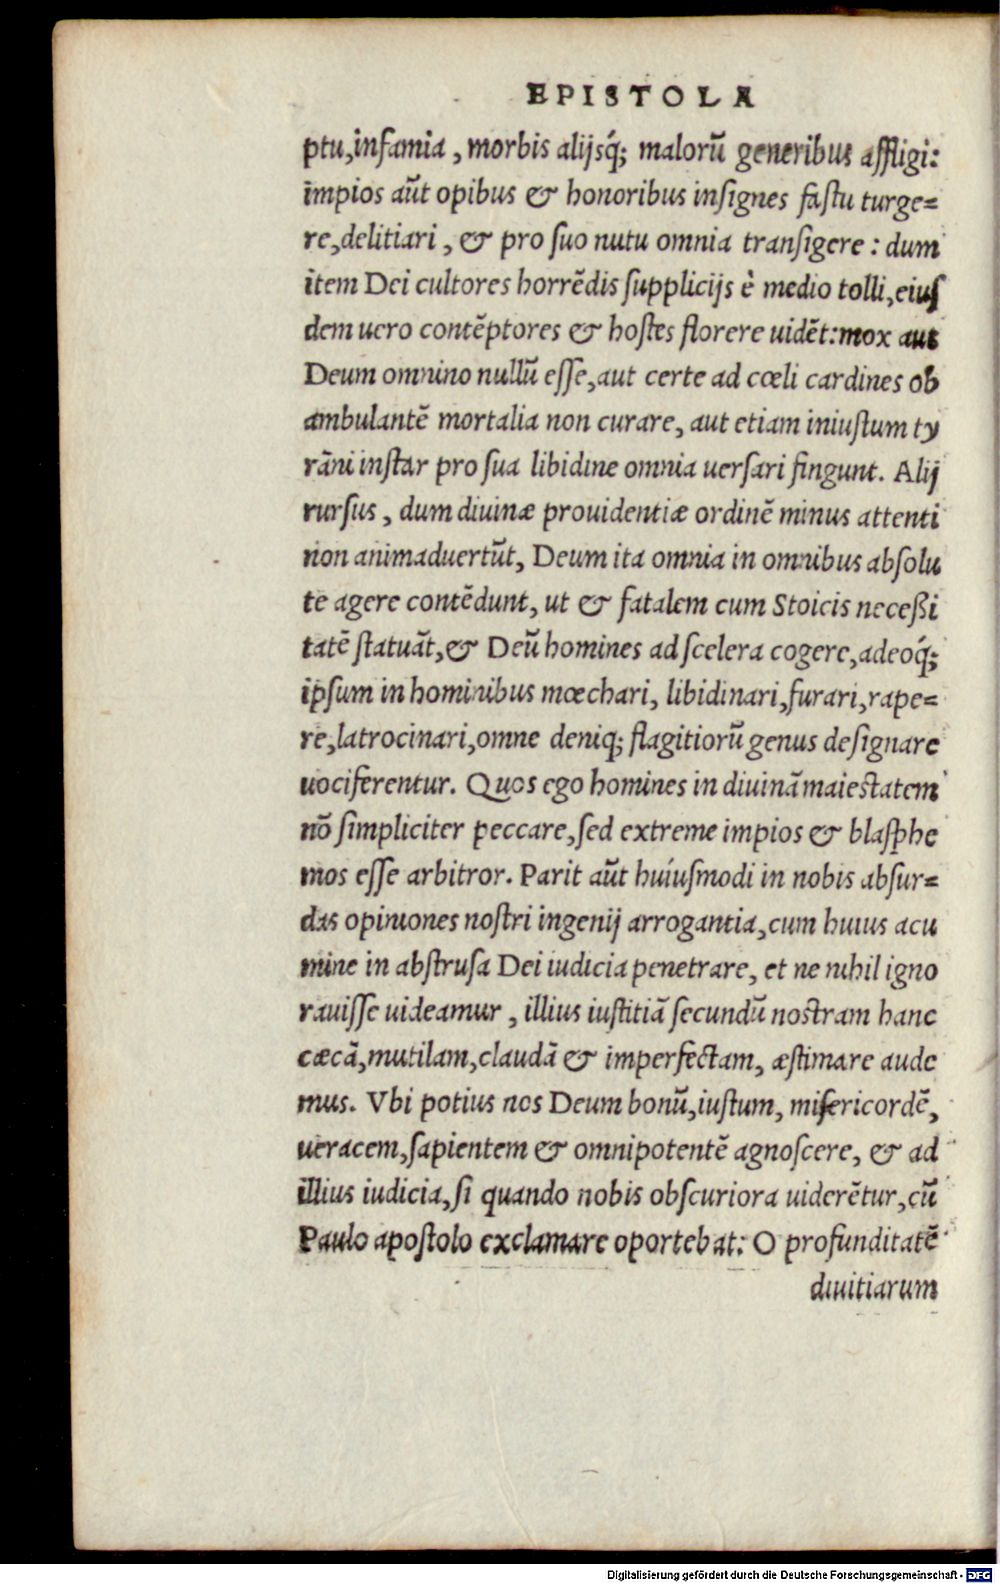 EPISTOLA
ptu, infamia, morbis alijsq́; malorũ generibus affligi:
impios aũt opibus & honoribus insignes fastu turge=
re, delitiari, & pro suo nutu omnia transigere: dum
item Dei cultores horrẽdis supplicijs è medio tolli, eius
dem uero contẽptores & hostes florere uidẽt: mox aut
Deum omnino nullũ esse, aut certe ad cœli cardines ob
ambulantẽ mortalia non curare, aut etiam iniustum ty
rãni instar pro sua libidine omnia uersari fingunt. Alij
rursus, dum diuinæ prouidentiæ ordinẽ minus attenti
non animaduertũt, Deum ita omnia in omnibus absolu
te agere contẽdunt, ut & fatalem cum Stoicis neceßi
tatẽ statuãt, & Deũ homines ad scelera cogere, adeoq́;
ipsum in hominibus mœchari, libidinari, furari, rape=
re, latrocinari, omne deniq; flagitiorũ genus designare
uociferentur. Quos ego homines in diuinã maiestatem
nõ simpliciter peccare, sed extreme impios & blasphe
mos esse arbitror. Parit aũt huiusmodi in nobis absur=
das opiniones nostri ingenij arrogantia, cum huius acu
mine in abstrusa Dei iudicia penetrare, et ne nihil igno
rauisse uideamur, illius iustitiã secundũ nostram hanc
cæcã, mutilam, claudã & imperfectam, æstimare aude
mus. Vbi potius nos Deum bonũ, iustum, misericordẽ,
ueracem, sapientem & omnipotentẽ agnoscere, & ad
illius iudicia, si quando nobis obscuriora uiderẽtur, cũ
Paulo apostolo exclamare oportebat: O profunditatẽ
diuitiarum
Digitalisierung gefördert durch die Deutsche Forschungsgemeinschaft - DFG